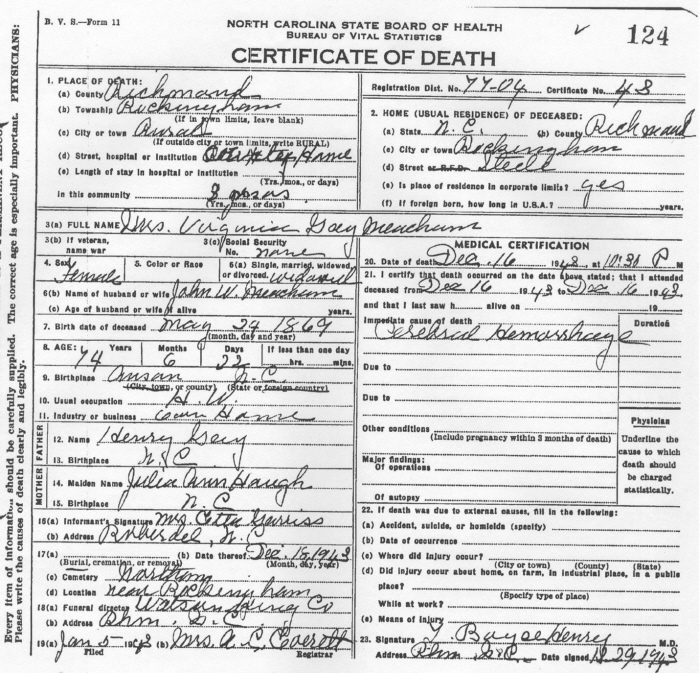 B. V. S.—Form 11
NORTH CAROLINA STATE BOARD OF HEALTH
BUREAU OF VITAL STATISTICS
124
CERTIFICATE OF DEATH
1. PLACE OF DEATH:
(a) County Richmond
(b) Township Rockingham
(If in town limits, leave blank)
(c) City or town Rural
(If outside city or town limits, write RURAL)
(d) Street, hospital or institution Home
(e) Length of stay in hospital or institution
(Yrs., mos., or days)
In this community 8 years
(Yrs., mos., or days)
Registration Dist. No. 77-04 Certificate No. 48
2. HOME (USUAL RESIDENCE) OF DECEASED:
(a) State N.C. (b) County Richmond
(c) City or town Rockingham
(d) Street or R.F.D. Steele
(e) Is place of residence in corporate limits? yes
(f) If foreign born, how long in U.S.A.? years.
3(a) FULL NAME Mrs. Virginia Gay Meacham
3(b) If veteran, name war
3(c) Social Security No. none
4. Sex Female
5. Color or Race
6(a) Single, married, widowed or divorced. widowed
6(b) Name of husband or wife John W. Meacham
(c) Age of husband or wife if alive years.
7. Birth date of deceased May 24 1869
(month, day and year)
8. AGE: 74 Years 6 Months 22 Days If less than one day hrs. mins.
9. Birthplace Anson N.C.
(City, town, or county) (State or foreign country)
10. Usual occupation H.W.
11. Industry or business own Home
FATHER
12. Name Henry Gay
13. Birthplace N.C
MOTHER
14. Maiden Name Julia Ann Haugh
15. Birthplace N C
16(a) Informant's Signature Mrs. Garriss
(b) Address Roberdel, N.C
17(a)
(Burial, cremation, or removal)
(b) Date thereof Dec. 18, 1943
(Month, day, year)
(c) Cemetery Northam
(d) Location near Rockingham
18(a) Funeral director Watson King Co
(b) Address
19(a) Jan 5 1943 (b) Mrs. A. C.
Filed Registrar
MEDICAL CERTIFICATION
20. Date of death Dec. 16 1943, at 10:30 P M
21. I certify that death occurred on the date above stated; that I attended
deceased from Dec 16 1943 to Dec 16 1943
and that I last saw h alive on 19
Immediate cause of death
Cerebral Hemorrhage
Duration
Due to
Due to
Other conditions
(Include pregnancy within 3 months of death)
Major findings:
Of operations
Of autopsy
Physician
Underline the cause to which death should be charged statistically.
22. If death was due to external causes, fill in the following:
(a) Accident, suicide, or homicide (specify)
(b) Date of occurrence
(c) Where did injury occur?
(City or town) (County) (State)
(d) Did injury occur about home, on farm, in industrial place, in a public
place?
(Specify type of place)
While at work?
(e) Means of injury
23. Signature Henry M.D.
Address Date signed 12.29 1943
Every item of information should be carefully supplied. The correct age is especially important. PHYSICIANS:
Please write the causes of death clearly and legibly.